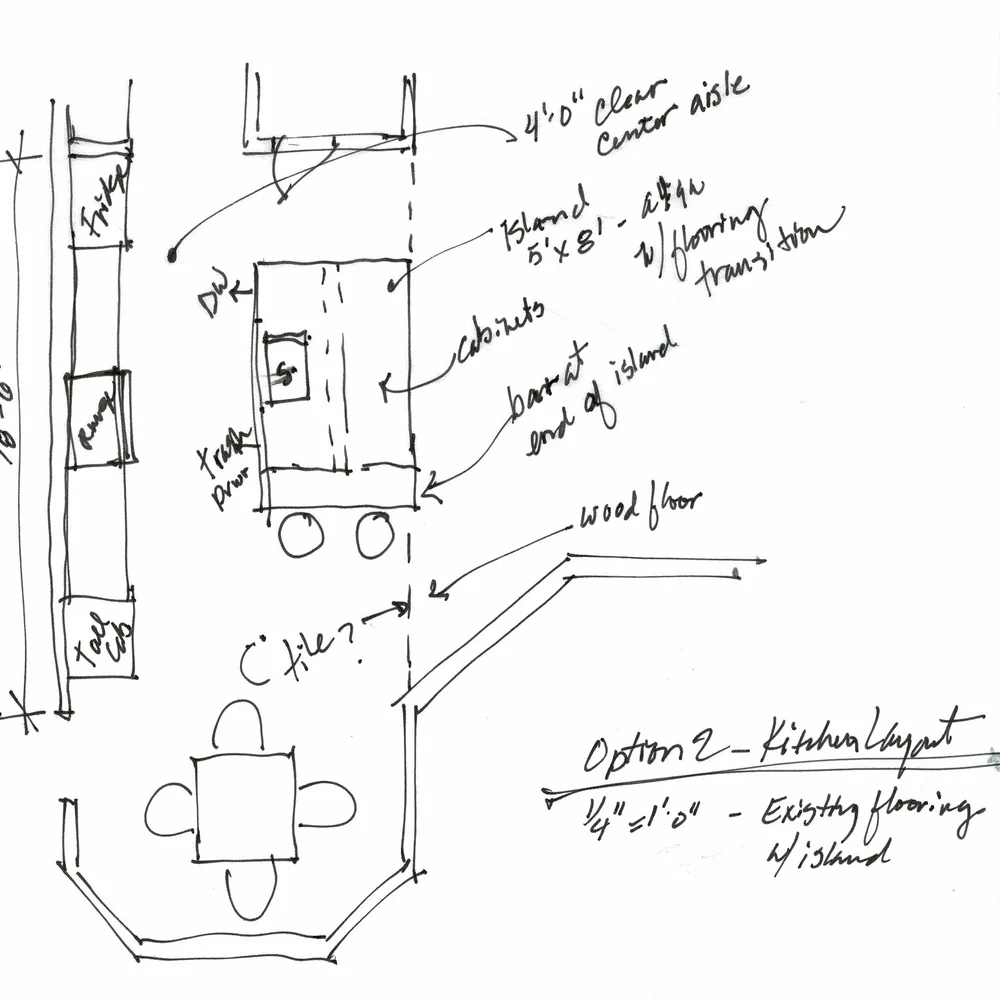 4'-0" clear
center aisle
Fridge
Island
5' x 8' - align
w/ flooring
transition
DW
cabinets
18'-0"
S
Range
bar at
end of island
Trash
Drwr
wood floor
C tile?
Tall
Cab
Option 2 - Kitchen Layout
1/4" = 1'-0" - Existing flooring
w/ island